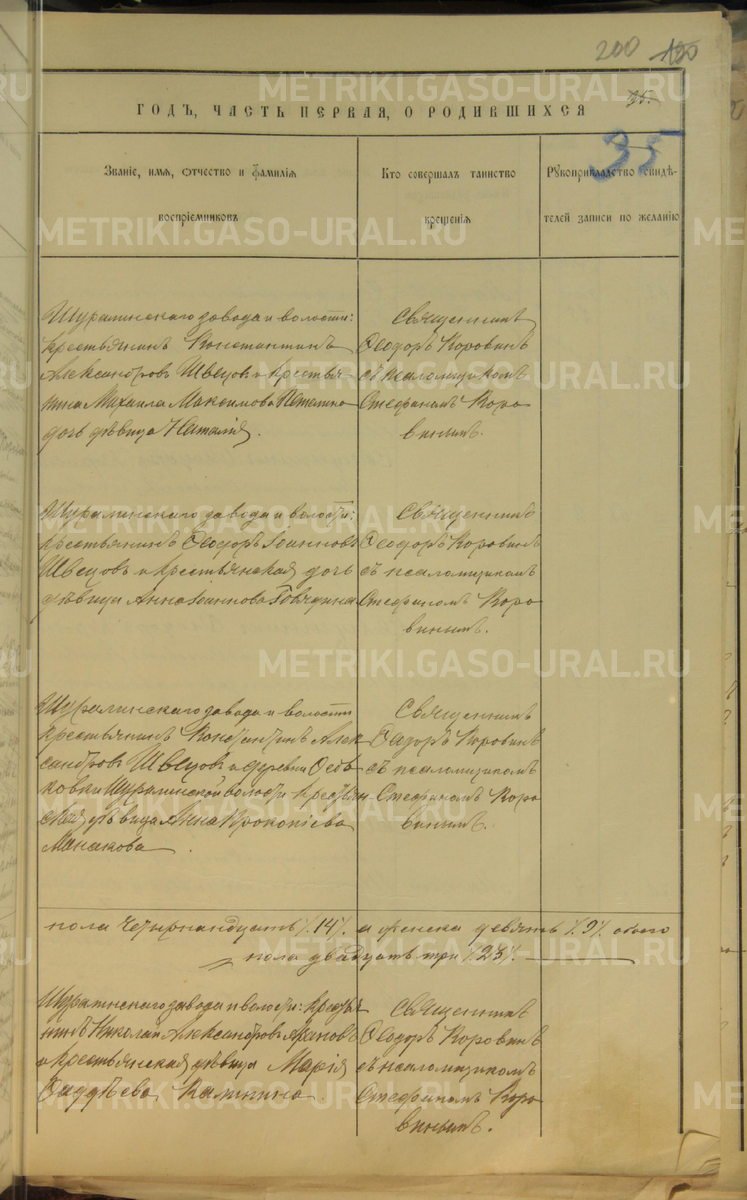 200 100
35.
ГОДЪ, ЧАСТЬ ПЕРВАЯ, О РОДИВШИХСЯ
35
Званіе, имя, отчество и фамилія
воспріемниковъ
Кто совершалъ таинство
крещенія
Рукоприкладство свидѣ-
телей записи по желанію
Шуралинскаго завода и волости:
крестьянинъ Константинъ
Александровъ Швецовъ и крестья-
нина Михаила Максимова
дочь дѣвица Наталія.
Священникъ
Ѳеодоръ Коровинъ
съ псаломщикомъ
Стефаномъ Коро
винымъ.
Шуралинскаго завода и волости:
крестьянинъ Ѳеодоръ Іоанновъ
Швецовъ и крестьянская дочь
дѣвица Анна Іоаннова Говядина
Священникъ
Ѳеодоръ Коровинъ
съ псаломщикомъ
Стефаномъ Коро
винымъ.
Шуралинскаго завода и волости
крестьянинъ Константинъ Алек
сандровъ Швецовъ и деревни Осев
ковки Шуралинской волости крестьян-
ская дѣвица Анна Прокопіева
Манакова
Священникъ
Ѳеодоръ Коровинъ
съ псаломщикомъ
Стефаномъ Коро
винымъ.
пола четырнадцать /.14/. а женска девять /.9/. обоего
пола двадцать три /.23/.
Шуралинскаго завода и волости: крестья
нинъ Николай Александровъ
и крестьянская дѣвица Марія
Ѳаддѣева Калинина.
Священникъ
Ѳеодоръ Коровинъ
съ псаломщикомъ
Стефаномъ Коро
винымъ.
METRIKI.GASO-URAL.RU
METRIKI.GASO-URAL.RU
METRIKI.GASO-URAL.RU
METRIKI.GASO-URAL.RU
METRIKI.GASO-URAL.RU
METRIKI.GASO-URAL.RU
METRIKI.GASO-URAL.RU
METRIKI.GASO-URAL.RU